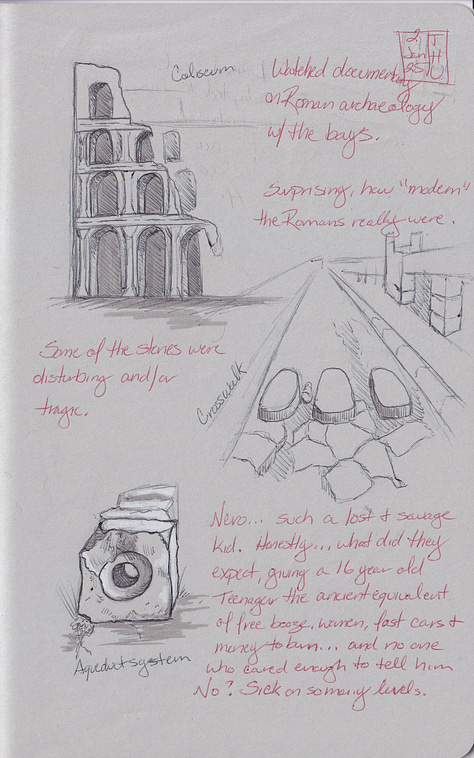 2 T
Jan H
25 U
Coliseum
Watched documentary
on Roman archaeology
w/ the boys.
Surprising, how "modern"
the Romans really were.
Some of the stories were
disturbing and/or
tragic.
Crosswalk
Nero... such a lost & savage
kid. Honestly... what did they
expect, giving a 16 year old
Teenager the ancient equivalent
of free booze, women, fast cars &
money to burn... and no one
who cared enough to tell him
No? Sick on so many levels.
Aqueduct system